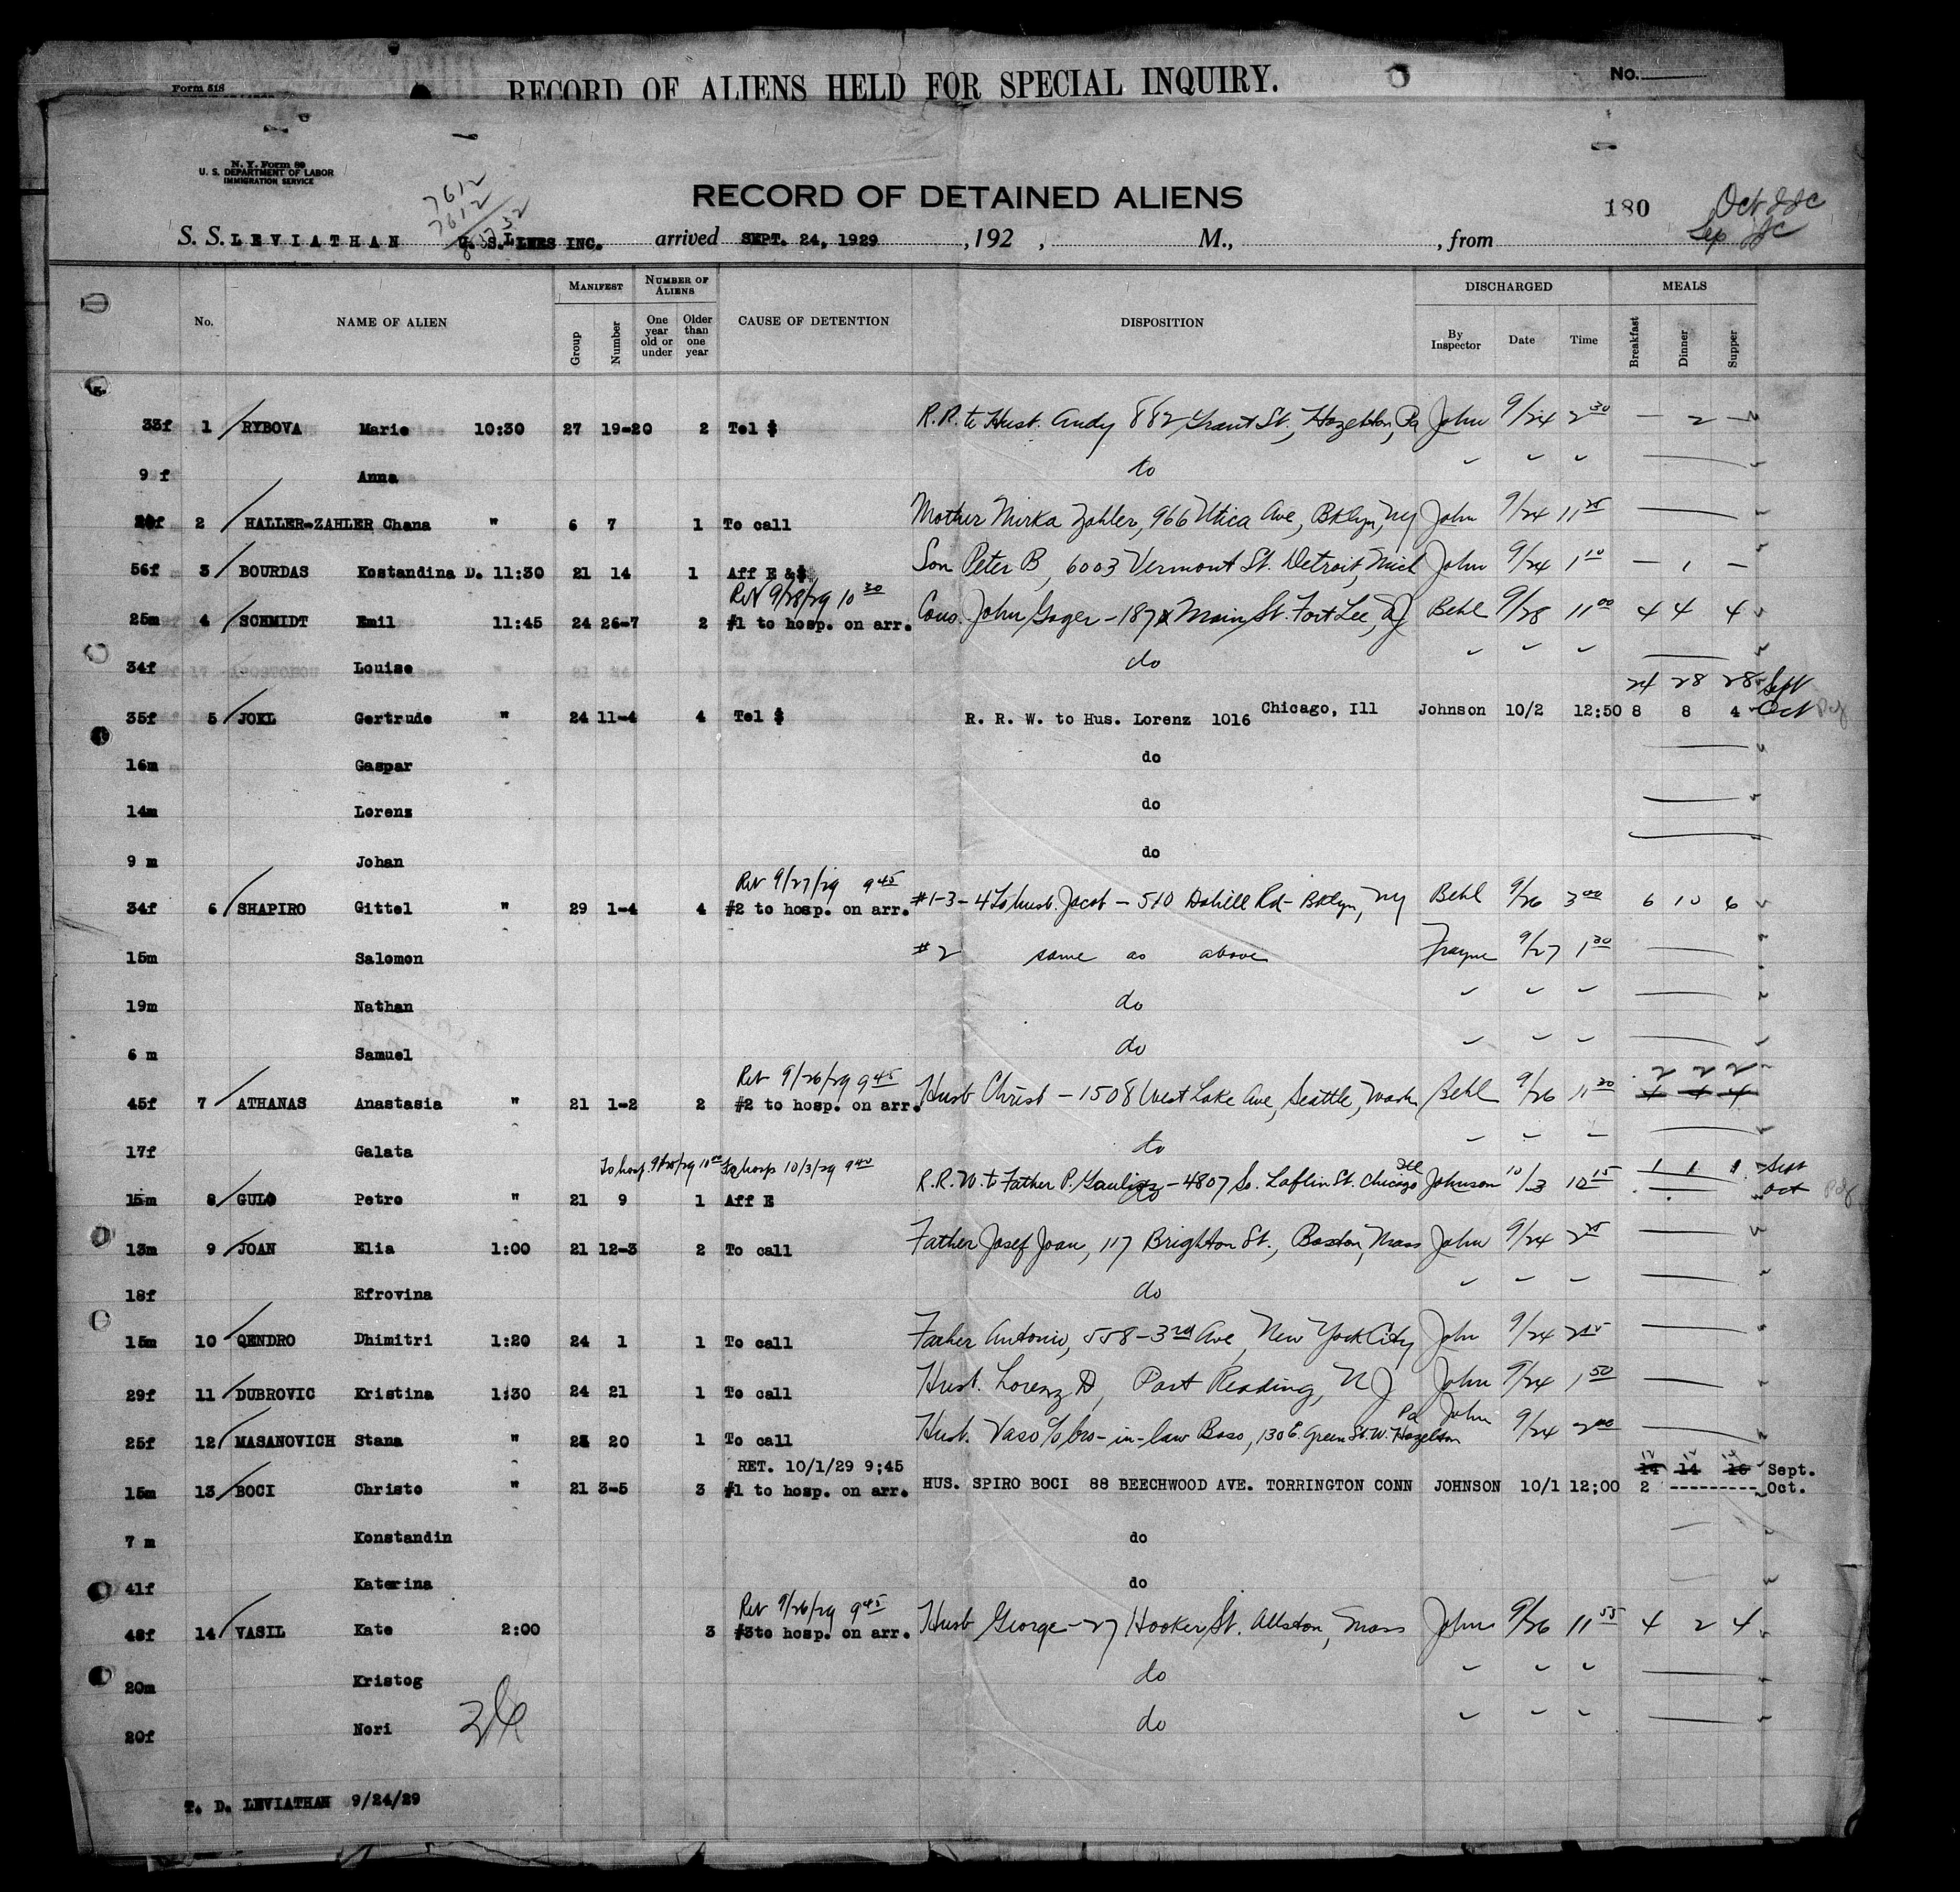 Form 518
RECORD OF ALIENS HELD FOR SPECIAL INQUIRY.
No.
N. Y. Form 89
U. S. DEPARTMENT OF LABOR
IMMIGRATION SERVICE
7612
7612
RECORD OF DETAINED ALIENS
180
S. S. LEVIATHAN U. S. LINES INC. arrived SEPT. 24, 1929 , 192 , M., , from
No. NAME OF ALIEN MANIFEST Group Number NUMBER OF ALIENS One year old or under Older than one year CAUSE OF DETENTION DISPOSITION DISCHARGED By Inspector Date Time MEALS Breakfast Dinner Supper
33f 1 RYBOVA Marie 10:30 27 19-20 2 Tel $ R.R. to Hust. Andy 882 Grant St., Hazelton, Pa John 9/24 2 30 — 2 —
9 f Anna do
2 HALLER-ZAHLER Chana " 6 7 1 To call Mother Mirka Zahler, 966 Utica Ave, Bklyn, NY John 9/24 11 25
56f 3 BOURDAS Kostandina D. 11:30 21 14 1 Aff E & $ Son Peter B, 6003 Vermont St. Detroit, Mich John 9/24 1 10 — 1 —
Ret 9/28/29 10 30
25m 4 SCHMIDT Emil 11:45 24 26-7 2 #1 to hosp. on arr. Cous. John Gager - 187 Main St. Fort Lee, NJ Behl 9/28 11 00 4 4 4
34f Louise do
24 28 28 Sept
35f 5 JOKL Gertrude " 24 11-4 4 Tel $ R. R. W. to Hus. Lorenz 1016 Chicago, Ill Johnson 10/2 12:50 8 8 4 Oct
16m Gaspar do
14m Lorenz do
9 m Johan do
Ret 9/27/29 9 45
34f 6 SHAPIRO Gittel " 29 1-4 4 #2 to hosp. on arr. #1-3-4 To husb. Jacob - 510 Dahill Rd - Bklyn, NY Behl 9/26 3 00 6 10 6
15m Salomon #2 same as above Frayne 9/27 1 30
19m Nathan do
6 m Samuel do
Ret 9/26/29 9 45 2 2 2
45f 7 ATHANAS Anastasia " 21 1-2 2 #2 to hosp. on arr. Husb Christ - 1508 West Lake Ave, Seattle, Wash Behl 9/26 11 20 4 4 4
17f Galata do
To hosp. 9/25/29 10 00 To hosp 10/3/29 9 40
15m 8 GULO Petro " 21 9 1 Aff E R.R.W. to Father P. - 4807 So. Laflin St. Chicago Ill Johnson 10/3 12 15 1 1 1 Sept
Oct
13m 9 JOAN Elia 1:00 21 12-3 2 To call Father Josef Joan, 117 Brighton St., Boston, Mass John 9/24 2 25
18f Efrovina do
15m 10 QENDRO Dhimitri 1:20 24 1 1 To call Father Antonio, 558 - 3rd Ave, New York City John 9/24 2 15
29f 11 DUBROVIC Kristina 1:30 24 21 1 To call Hust. Lorenz D, Port Reading, N J John 9/24 1 50
25f 12 MASANOVICH Stana " 20 1 To call Hust. Vaso c/o bro-in-law Boso, 130 E. Green St. W. Hazelton Pa John 9/24 2 00
RET. 10/1/29 9;45 12 12 14 14 14 16 Sept.
15m 13 BOCI Christo " 21 3-5 3 #1 to hosp. on arr. HUS. SPIRO BOCI 88 BEECHWOOD AVE. TORRINGTON CONN JOHNSON 10/1 12;00 2 --------- Oct.
7 m Konstandin do
41f Katerina do
Ret 9/26/29 9 45
48f 14 VASIL Kate 2:00 3 #3to hosp. on arr. Husb George - 27 Hooker St. Allston, Mass John 9/26 11 55 4 2 4
20m Kristog do
20f Nori do
T. D. LEVIATHAN 9/24/29